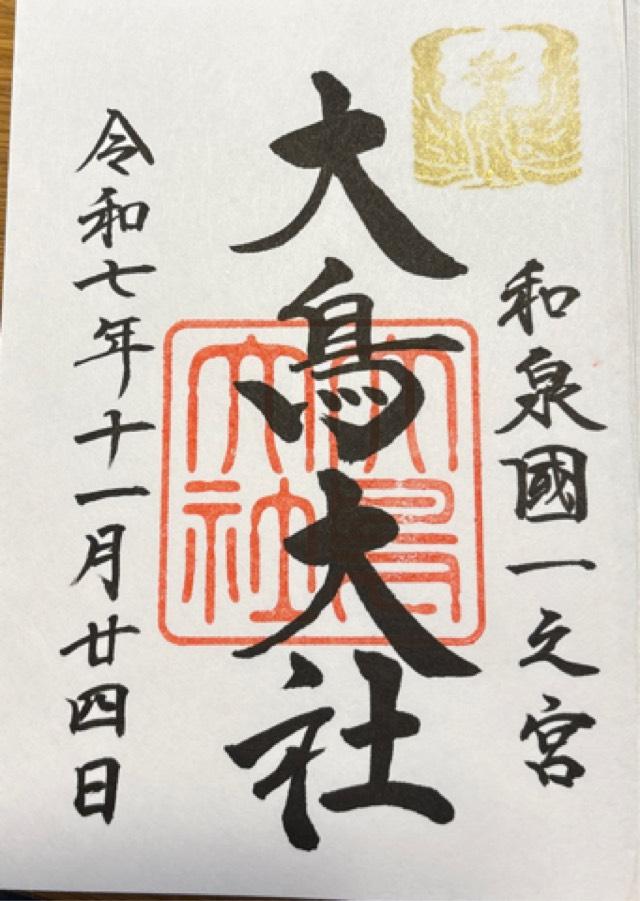 和泉國一之宮
大鳥大社
大鳥大社
令和七年十一月廿四日